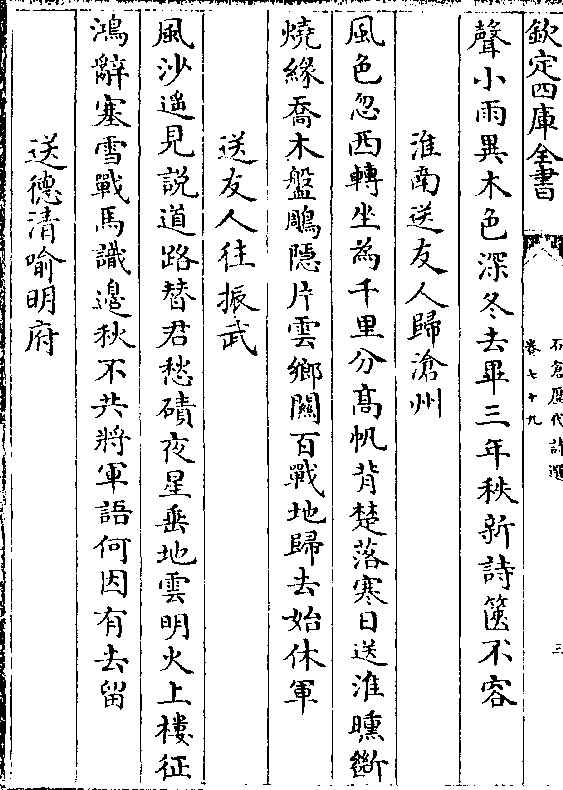 欽定四庫全書
石倉歷代詩選
卷七十九
三
聲小雨異木色深冬去畢三年秩新詩箧不容
淮南送友人歸滄州
風色忽西轉坐為千里分高帆背楚落寒日送淮曛斷
燒緣喬木盤鵰隱片雲鄉關百戰地歸去始休軍
送友人往振武
風沙遥見說道路替君愁磧夜星垂地雲明火上樓征
鴻辭塞雪戰馬識邊秋不共將軍語何因有去留
送德清喻明府